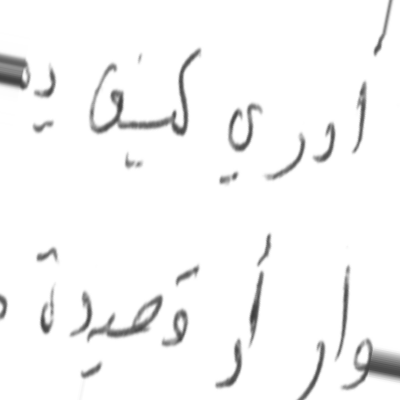 أدري كيف
وار أو قصيدة